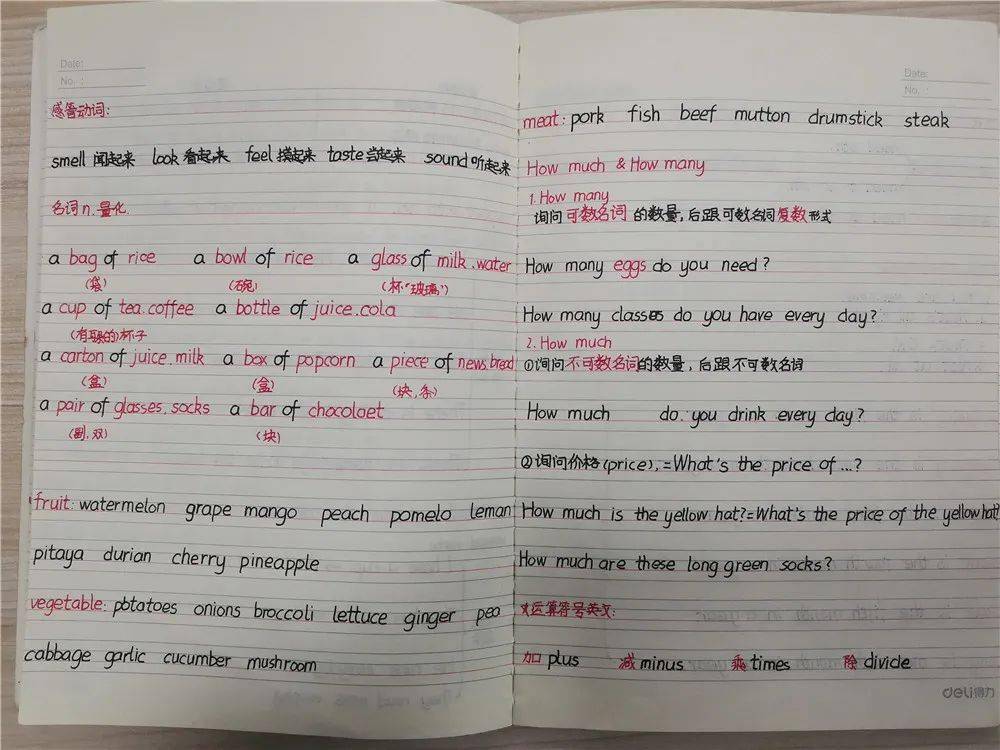 Date:
No. :
感官动词:
smell 闻起来 look 看起来 feel 摸起来 taste 尝起来 sound 听起来
名词 n. 量化.
a bag of rice a bowl of rice a glass of milk.water
(袋) (碗) (杯"玻璃")
a cup of tea.coffee a bottle of juice.cola
(有耳朵的)杯子
a carton of juice.milk a box of popcorn a piece of news.bread
(盒) (盒) (块,条)
a pair of glasses.socks a bar of chocolaet
(副,双) (块)
fruit: watermelon grape mango peach pomelo leman
pitaya durian cherry pineapple
vegetable: potatoes onions broccoli lettuce ginger pea
cabbage garlic cucumber mushroom
Date:
No. :
meat: pork fish beef mutton drumstick steak
How much & How many
1. How many
询问可数名词的数量,后跟可数名词复数形式
How many eggs do you need?
How many classes do you have every day?
2. How much
①询问不可数名词的数量,后跟不可数名词
How much do you drink every day?
②询问价格(price),=What's the price of ...?
How much is the yellow hat?=What's the price of the yellow hat?
How much are these long green socks?
运算符号英文:
加 plus 减 minus 乘 times 除 divide
deli得力